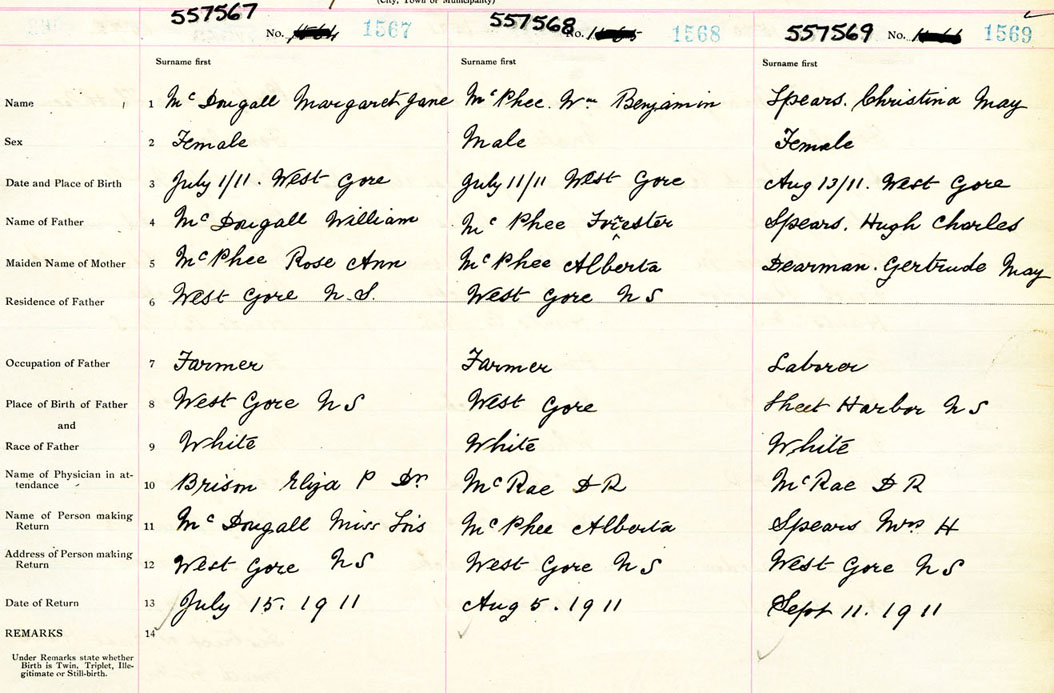 (City, Town or Municipality)
557567 557568 557569
No. 1567 No. 1568 No. 1569
Surname first Surname first Surname first
Name 1 McDougall Margaret Jane McPhee. Wm Benjamin Spears. Christina May
Sex 2 Female Male Female
Date and Place of Birth 3 July 1/11. West Gore July 11/11 West Gore Aug 13/11. West Gore
Name of Father 4 McDougall William McPhee Forrester Spears. Hugh Charles
Maiden Name of Mother 5 McPhee Rose Ann McPhee Alberta Dearman. Gertrude May
Residence of Father 6 West Gore N.S. West Gore N S
Occupation of Father 7 Farmer Farmer Laborer
Place of Birth of Father 8 West Gore N S West Gore Sheet Harbor N S
and
Race of Father 9 White White White
Name of Physician in at-
tendance 10 Brison Eliza P Dr. McRae D R McRae D R
Name of Person making
Return 11 McDougall Miss Lois McPhee Alberta Spears Mrs H
Address of Person making
Return 12 West Gore N S West Gore N S West Gore N S
Date of Return 13 July 15. 1911 Aug 5. 1911 Sept 11. 1911
REMARKS 14
Under Remarks state whether
Birth is Twin, Triplet, Ille-
gitimate or Still-birth.